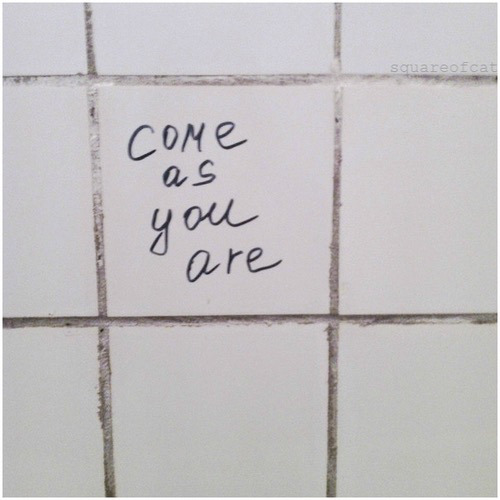 squareofcat
come
as
you
are